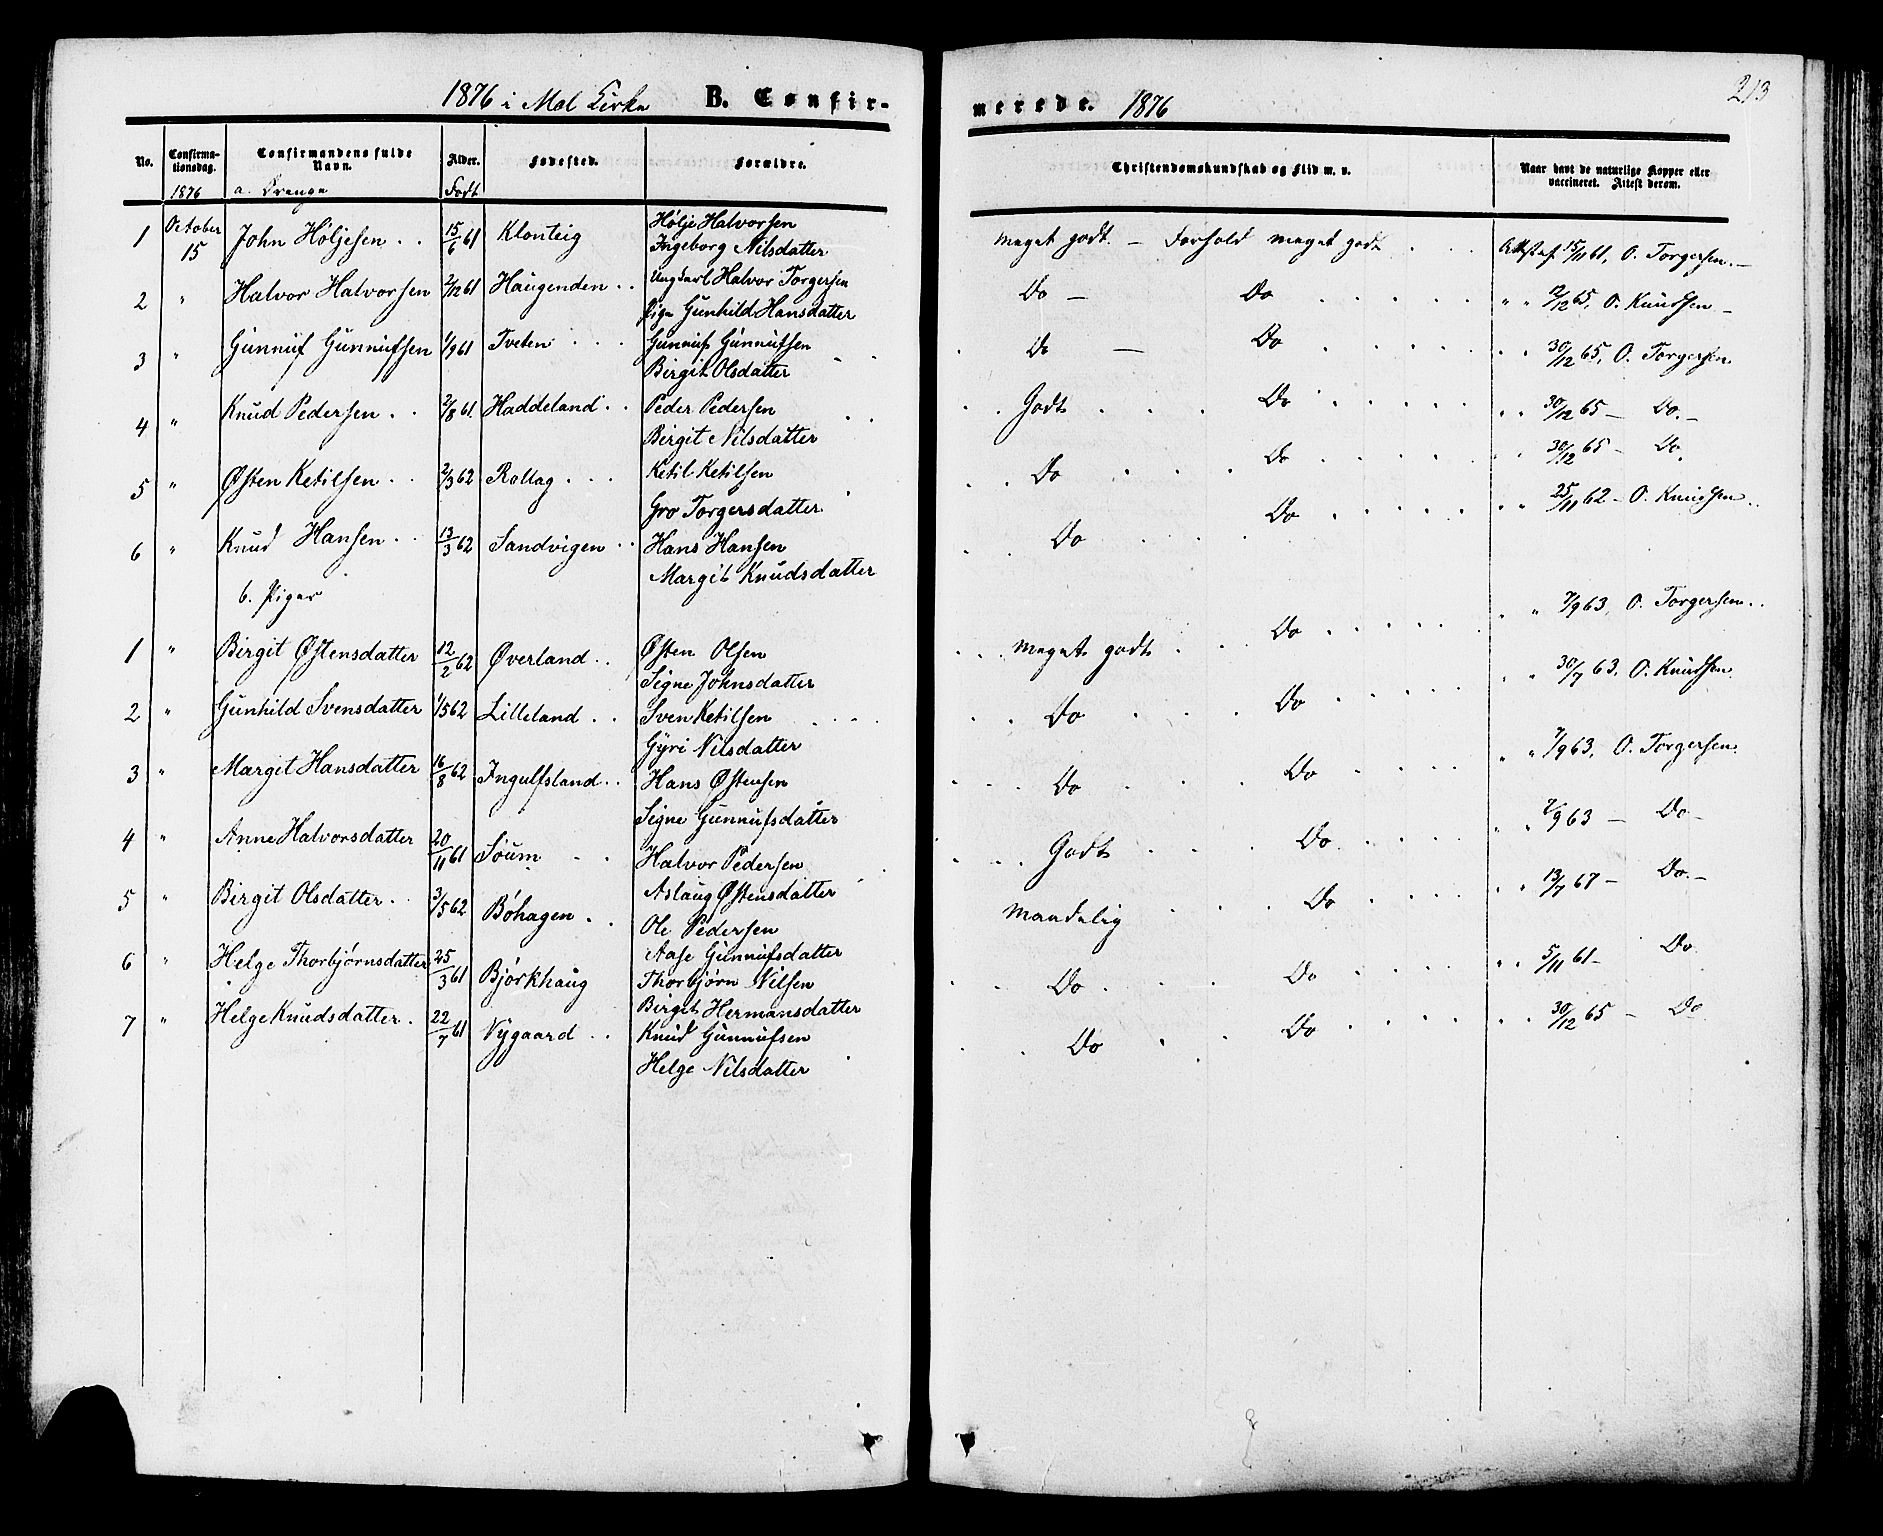 1876 i Mæl Kirke B. Confir-
merede. 1876
213
No. Confirma-tionsdag. Confirmandens fulde Navn. Alder. Fødested. Forældre. Christendomskundskab og Flid m. v. Naar havt de naturlige Kopper eller vaccineret. Attest derom.
1876 a. Drenge Født
1 October 15 John Høljesen . . 15/6 61 Klonteig Hølje Halvorsen meget godt. — Forhold meget godt . . Attest af 15/11 61, O. Torgersen. —
Ingeborg Nilsdatter
2 " Halvor Halvorsen 2/12 61 Haugenden . . Ungkarl Halvor Torgersen Do — Do . . . . . " " 2/12 65, O. Knudsen —
Pige Gunhild Hansdatter
3 " Gunnuf Gunnufsen 1/9 61 Tveten . . . Gunnuf Gunnufsen Do — Do . . . . . " " 30/12 65, O. Torgersen.
Birgit Olsdatter
4 " Knud Pedersen . . 2/8 61. Haddeland . . Peder Pedersen Godt . . . Do . . . . . " " 30/12 65 — Do. —
Birgit Nilsdatter
5 " Østen Ketilsen . . 2/3 62 Rollag . . . Ketil Ketilsen Do . . . Do . . . . . " " 30/12 65 — Do.
Gro Torgersdatter
6 " Knud Hansen . . 13/3 62 Sandvigen . . Hans Hansen Do . . . Do . . . . . " " 25/11 62 — O. Knudsen . .
Margit Knudsdatter
b. Piger
1 " Birgit Østensdatter 12/2 62 Øverland . . Østen Olsen meget godt . . . Do . . . . . " " 7/9 63, O. Torgersen . .
Signe Johnsdatter
2 " Gunhild Svensdatter 1/5 62 Lilleland . . Sven Ketilsen Do . . . Do . . . . . " " 30/7 63, O. Knudsen
Gyri Nilsdatter
3 " Margit Hansdatter 16/8 62 Ingulfsland . . Hans Østensen Do . . . Do . . . . " " 7/9 63, O. Torgersen
Signe Gunnufsdatter
4 " Anne Halvorsdatter 20/11 61 Søum . . Halvor Pedersen Godt . . . Do . . . . " " 7/9 63 — Do —
Aslaug Østensdatter
5 " Birgit Olsdatter . . 3/5 62 Bøhagen . . Ole Pedersen Maadelig . . . Do . . . . " " 13/7 67 — Do. —
Aase Gunnufsdatter
6 " Helge Thorbjørnsdatter 25/3 61 Bjørkhaug Thorbjørn Nilsen Do . . . Do . . . . " " 5/11 61 — Do
Birgit Hermansdatter
7 " Helge Knudsdatter . 22/7 61 Nygaard . . Knud Gunnufsen Do . . . Do . . . . " " 30/12 65 — Do
Helge Nilsdatter